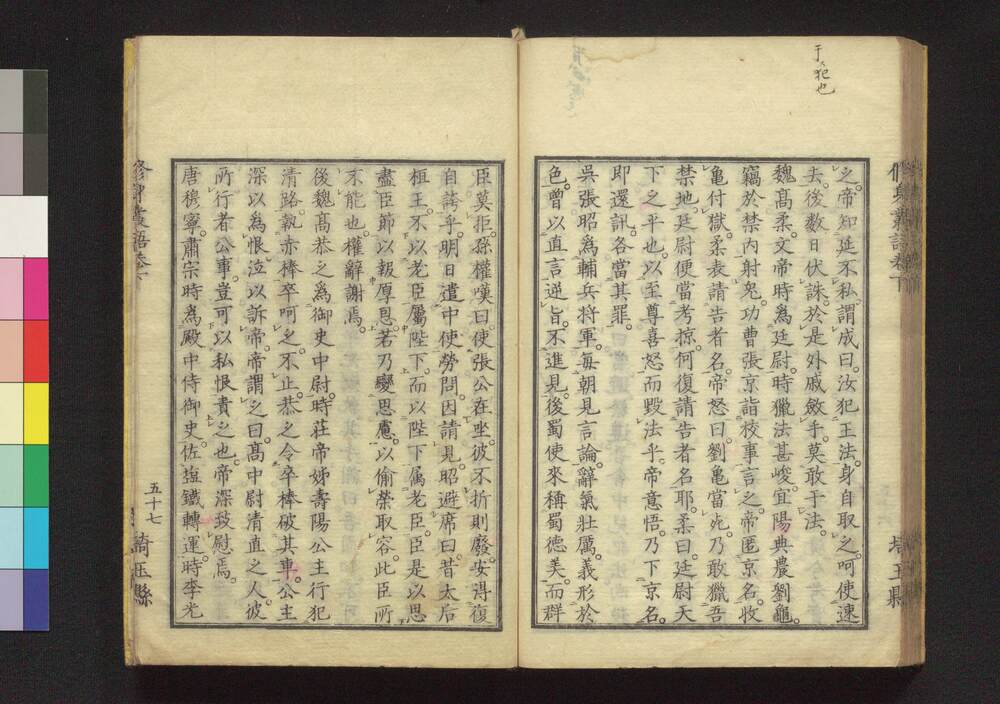 于犯也
之。帝知延不私。謂成曰。汝犯王法。身自取之。呵使速
去。後数日伏誅。於是外戚斂手。莫敢干法。
魏髙柔。文帝時爲廷尉。時獵法甚峻。宜陽典農劉龜。
竊於禁内射兔。功曹張京詣校事言之。帝匿京名。收
龜付獄。柔表請告者名。帝怒曰。劉龜當死。乃敢獵吾
禁地。廷尉便當考掠。何復請告者名耶。柔曰。廷尉天
下之平也。以至尊喜怒而毀法乎。帝意悟。乃下京名。
即還訊。各當其罪。
吳張昭爲輔兵将軍。每朝見言論。辭氣壯厲。義形於
色。曾以直言逆旨。不進見。後蜀使來稱蜀德美。而群
臣莫拒。孫權嘆曰。使張公在坐。彼不折則廢。安得復
自誇乎。明日遣中使勞問。因請見昭。避席曰。昔太后
桓王。不以老臣屬陛下。而以陛下屬老臣。臣是以思
盡臣節。以報厚恩。若乃變思慮。以偷榮取容。此臣所
不能也。權辭謝焉。
後魏髙恭之爲御史中尉。時莊帝姊壽陽公主行犯
清路。執赤棒卒呵之。不止。恭之令卒棒破其車。公主
深以爲恨。泣以訴帝。帝謂之曰。髙中尉清直之人。彼
所行者公事。豈可以私恨責之也。帝深致慰焉。
唐穆寧。肅宗時爲殿中侍御史。佐鹽鐵轉運。時李光
五十七
埼玉縣